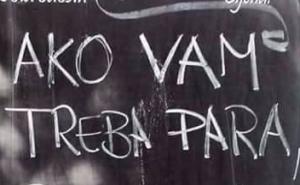 AKO VAM
TREBA PARA,